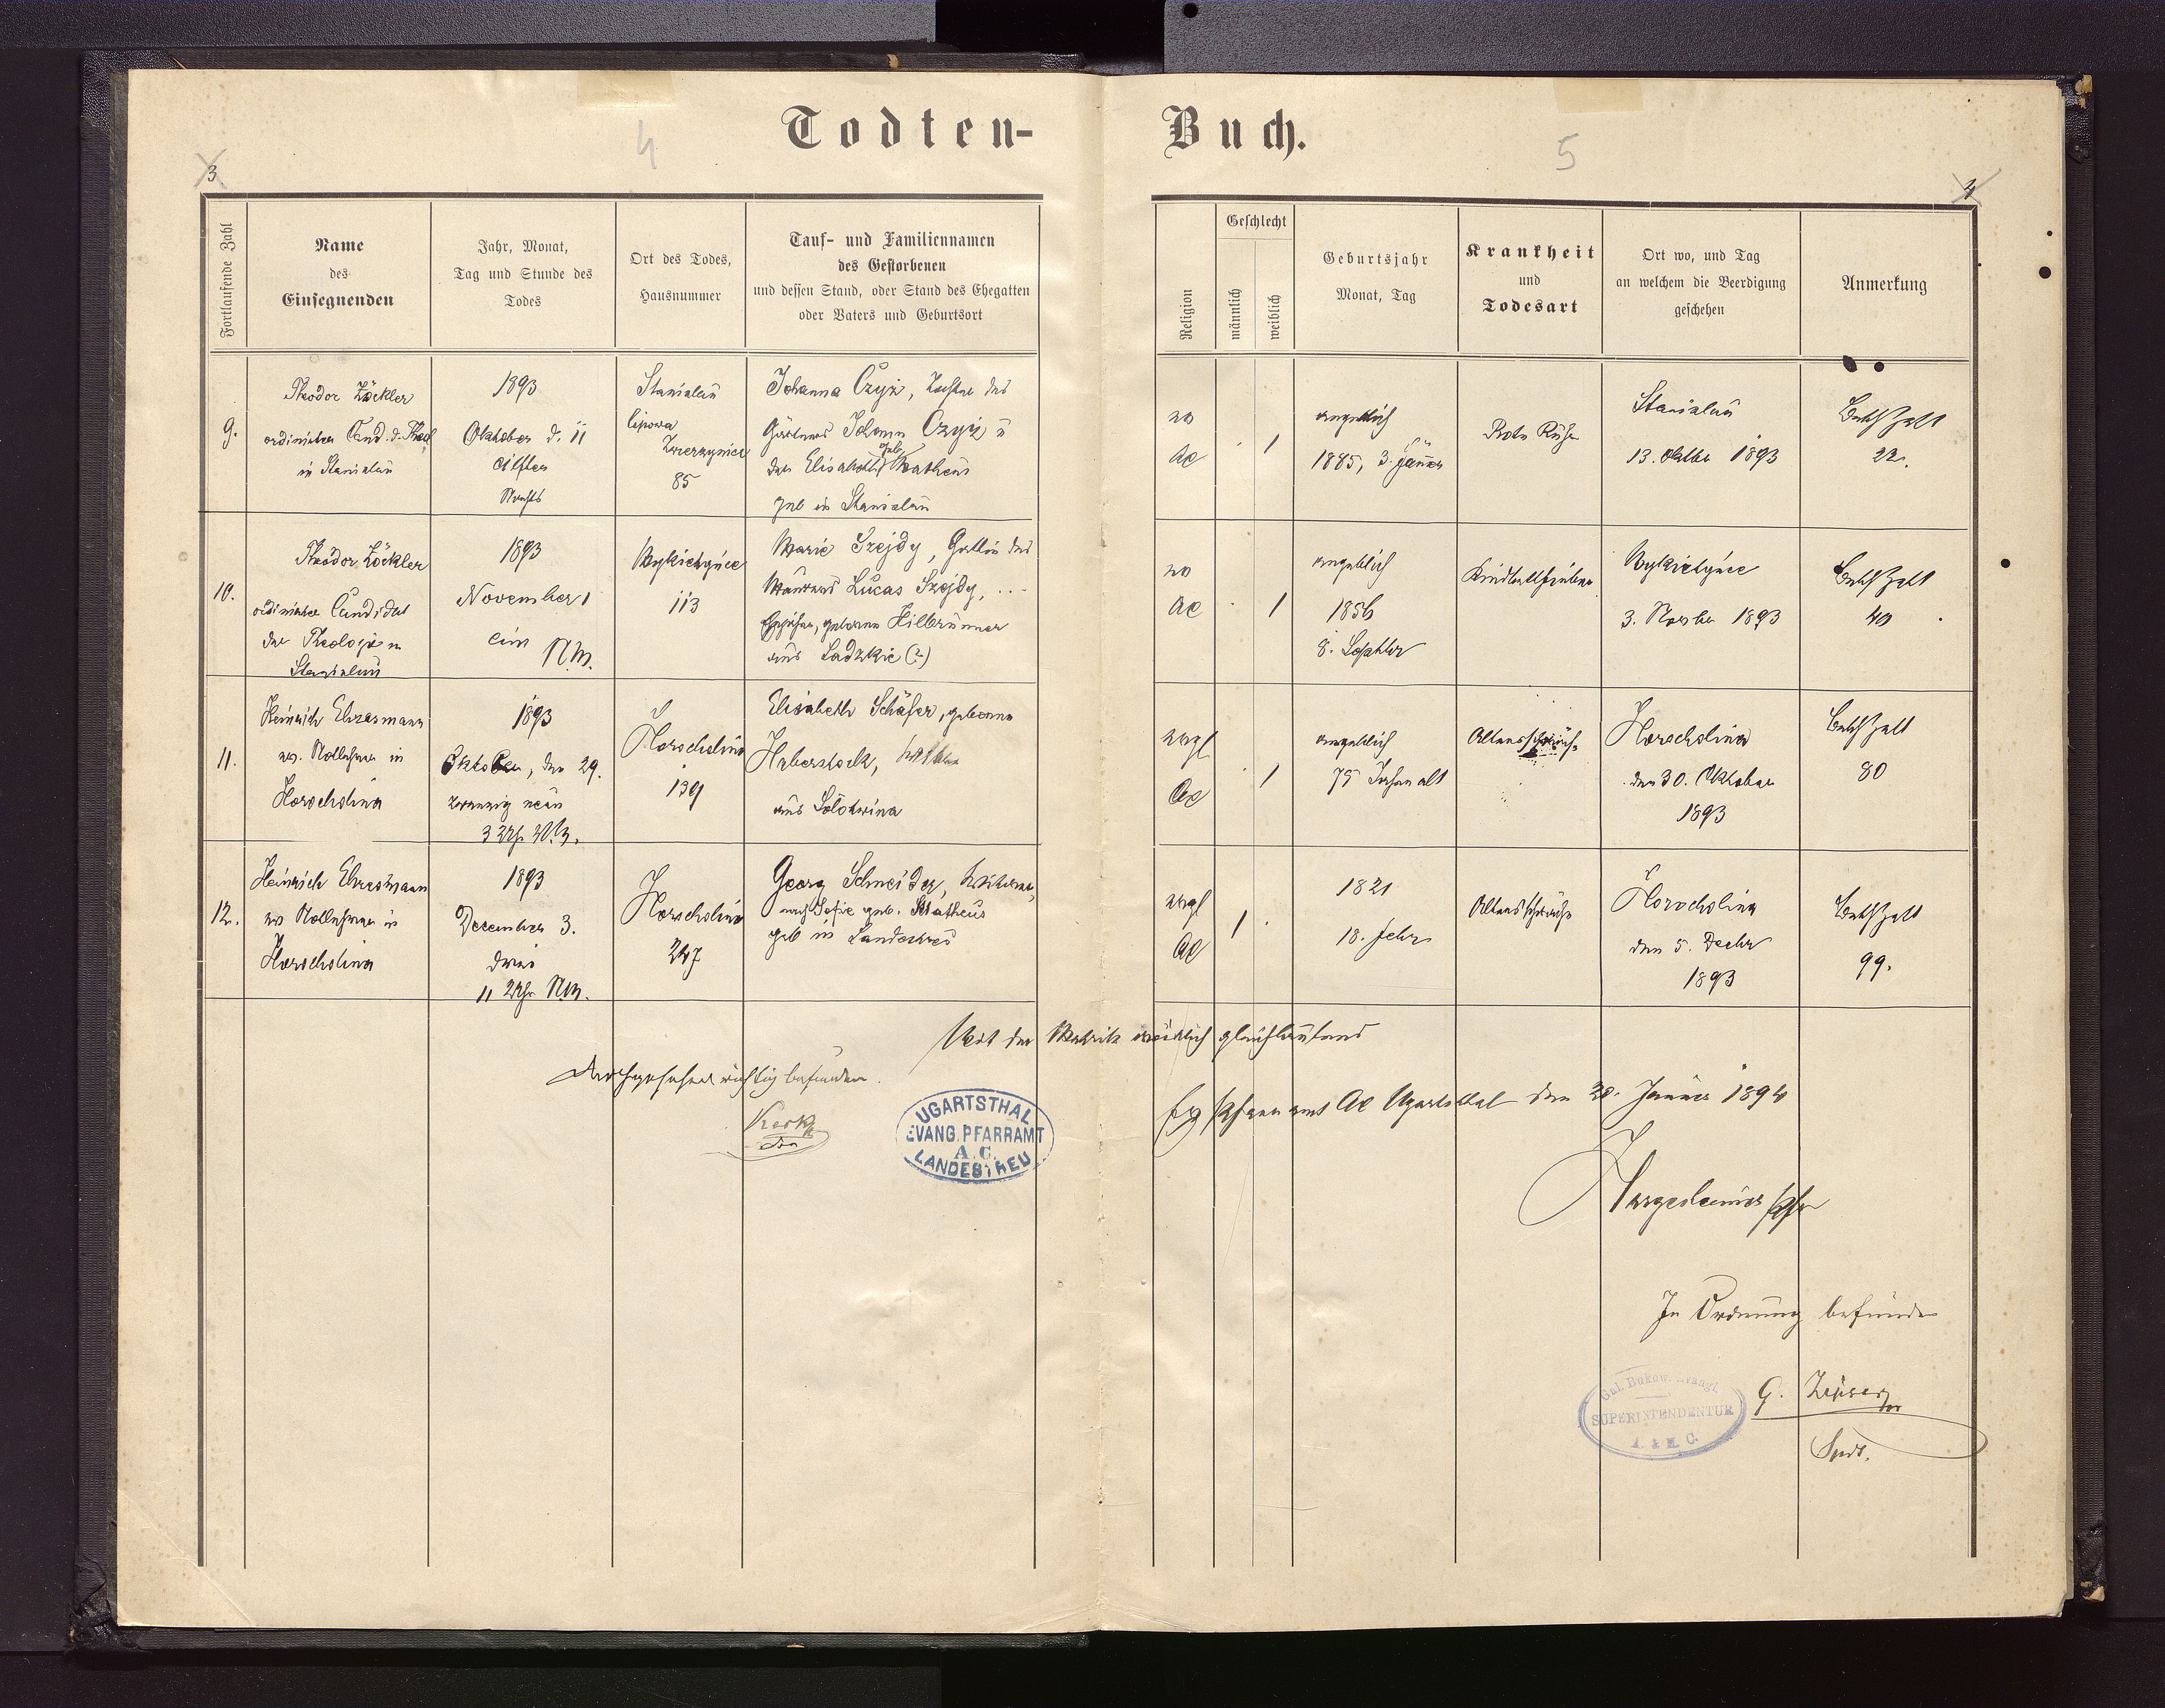 Todten-
Buch.
4
5
3
4
Fortlaufende Zahl
Name
des
Einsegnenden
Jahr, Monat,
Tag und Stunde des
Todes
Ort des Todes,
Hausnummer
Tauf- und Familiennamen
des Gestorbenen
und dessen Stand, oder Stand des Ehegatten
oder Vaters und Geburtsort
Religion
Geschlecht
männlich
weiblich
Geburtsjahr
Monat, Tag
Krankheit
und
Todesart
Ort wo, und Tag
an welchem die Beerdigung
geschehen
Anmerkung
9.
Theodor Zöckler
ordinirter Cand. d. Theol
in Stanislau
1893
Oktober d. 11
eilften
Nachts
Stanislau
85
Johanna Czyż, Tochter des
Gärtners Johann Czyż u
der Elisabeth geb Matheus
geb in Stanislau
ev
AC
1
angeblich
1885, 3. Jänner
Rote Ruhr
Stanislau
13. Oktbr 1893
22.
10.
Theodor Zöckler
ordinirter Candidat
der Theologie in
Stanislau
1893
November 1
ein
N.M.
113
Marie Szejdy, Gattin des
Maurers Lucas Szejdy, ...
geborene Hilbrunner
aus Ladzkie (?)
ev
AC
1
angeblich
1856
8. Septbr
Kindbettfieber
3. Novbr 1893
40
11.
Heinrich Ehresmann
ev. Notlehrer in
Horocholina
1893
Oktober, den 29.
zwanzig neun
3 Uhr
Horocholina
139
Elisabeth Schäfer, geborene
Haberstock, Wittwe
aus Solotwina
evgl
AC
1
angeblich
75 Jahre alt
Altersschwäche
Horocholina
den 30. Oktober
1893
80
12.
Heinrich Ehresmann
ev Notlehrer in
Horocholina
1893
December 3.
drei
11 Uhr NM.
Horocholina
247
Georg Schneider, Wittwer
nach Sofie geb. Matheus
geb in Landestreu
evgl
AC
1
1821
18. Febr.
Altersschwäche
Horocholina
den 5. Decbr
1893
99.
Mit der Matrik wörtlich gleichlautend
Durchgesehen richtig befunden.
UGARTSTHAL
EVANG. PFARRAMT
A. C.
LANDESTREU
Ev Pfarramt AC Ugartsthal den 30. Jänner 1894
In Ordnung befunden
Gal. Bukow. Evangl.
SUPERINTENDENTUR
A. & H. C.
Supdt.